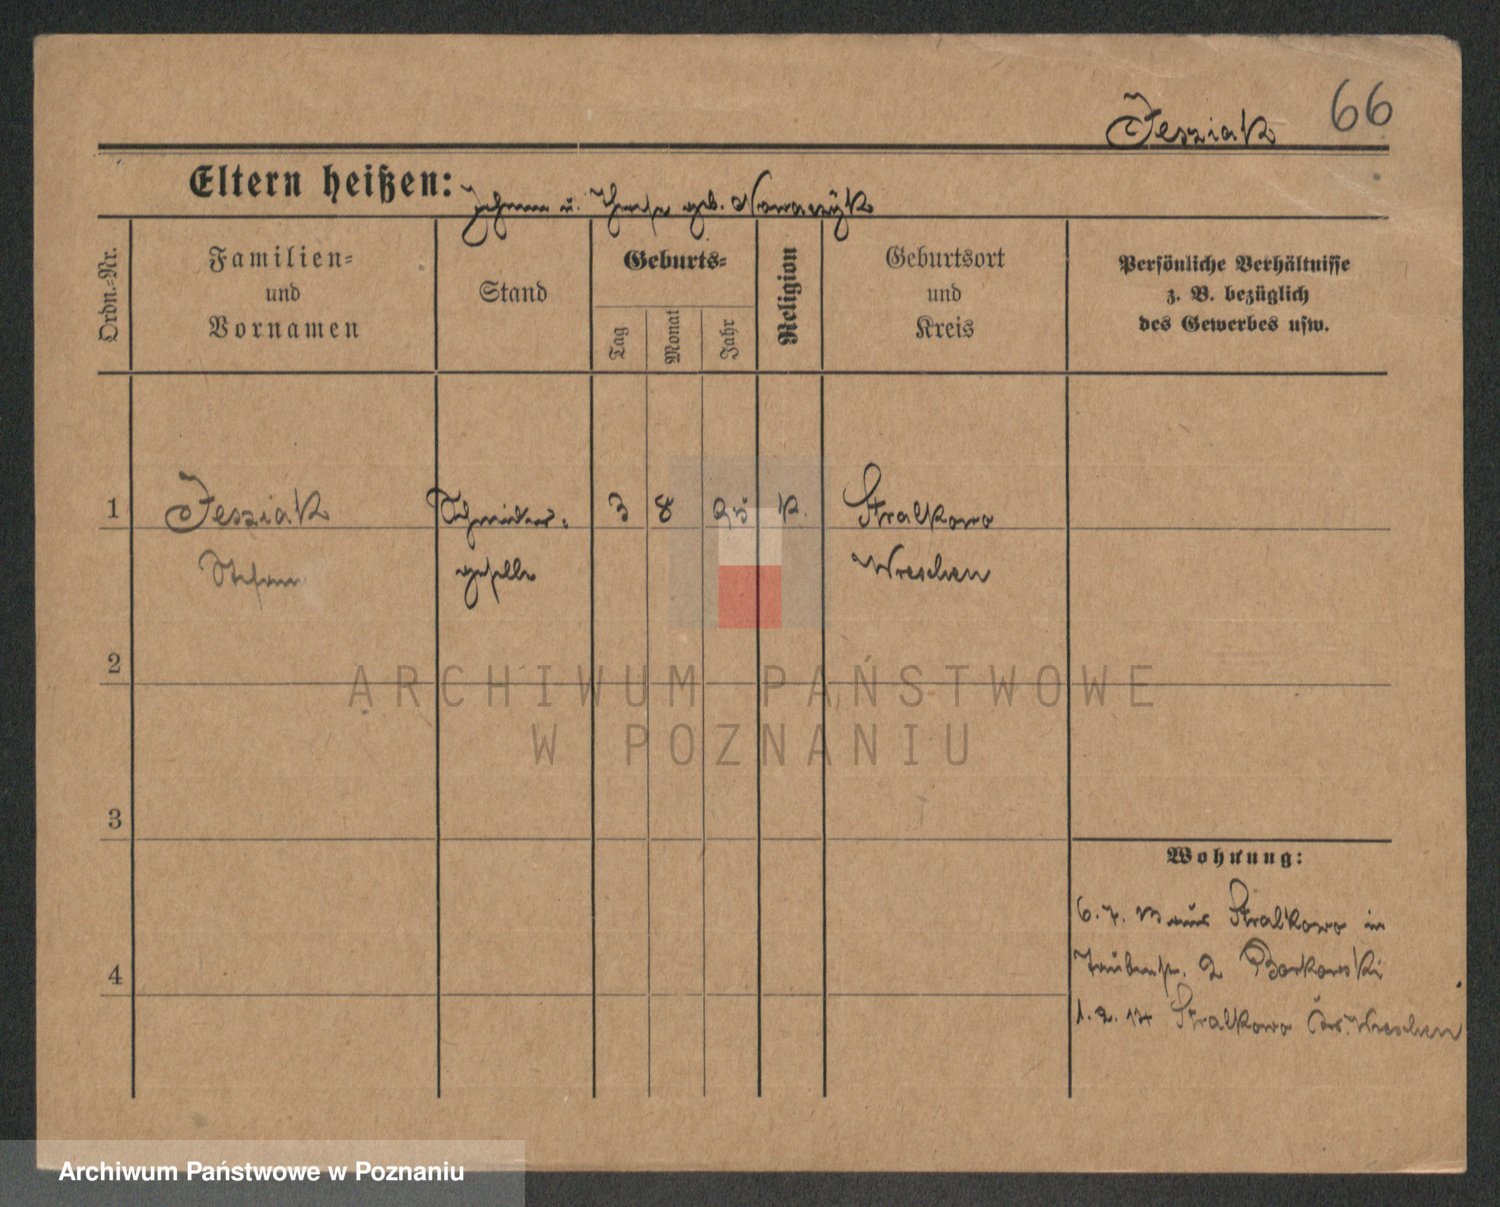 66
Jesziak
Eltern heißen: Johann u. Therese geb. Nowaczyk
Ordn.-Nr.
Familien-
und
Vornamen
Stand
Geburts-
Tag
Monat
Jahr
Religion
Geburtsort
und
Kreis
Persönliche Verhältnisse
z. B. bezüglich
des Gewerbes usw.
1 Jesziak Schneider- 3 8 95 k. Stralkowo
Stefan geselle Wreschen
2
ARCHIWUM PAŃSTWOWE
W POZNANIU
3
Wohnung:
6. 7. 13 aus Stralkowo in
4 Taubenstr. 2 Borkowski
1. 2. 14 Stralkowo Wreschen
Archiwum Państwowe w Poznaniu